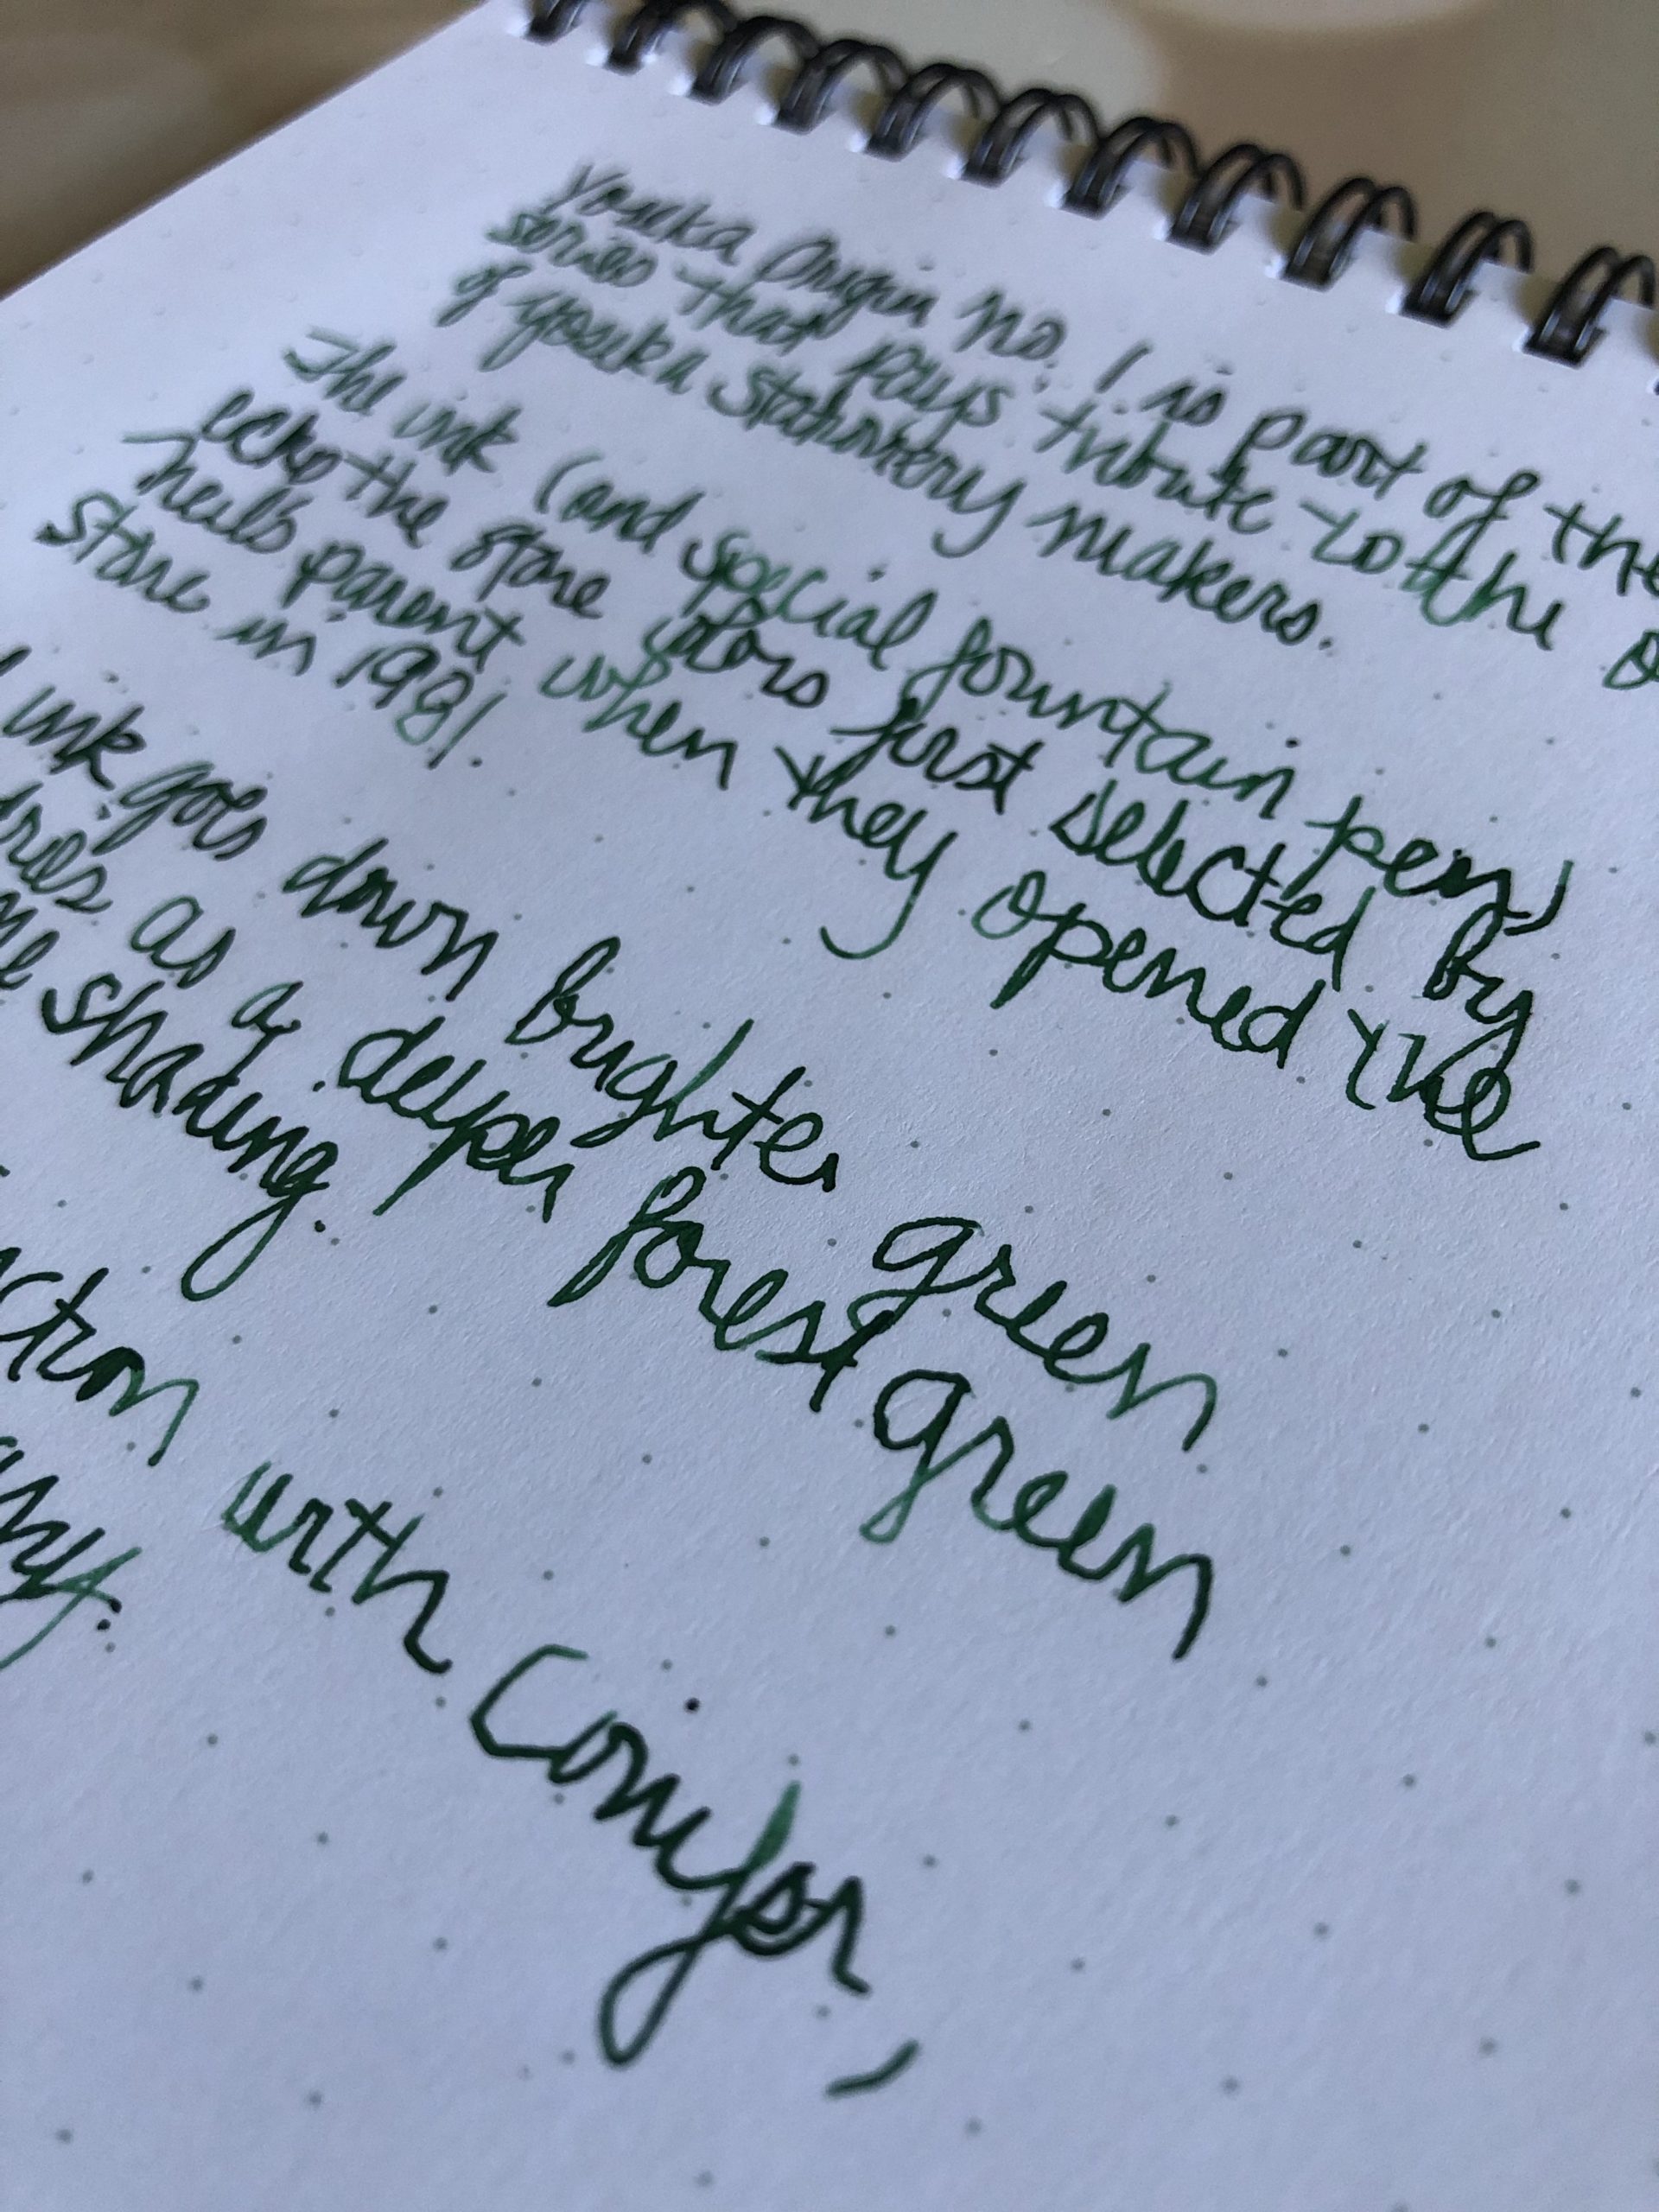 Yoseka Origin No. 1 is part of the
series that pays tribute to the
of Yoseka Stationery makers.
The ink (and special fountain pen)
echo the store colors first selected by
Neil's parent when they opened the
store in 1981.
ink goes down brighter green
dries as a deeper forest green
shading.
with Conifer,